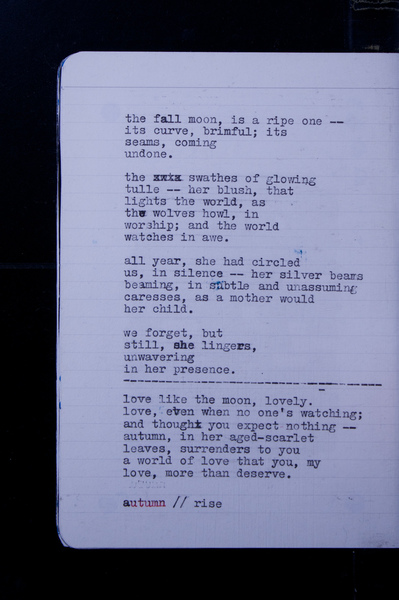 the fall moon, is a ripe one --
its curve, brimful; its
seams, coming
undone.
the swathes of glowing
tulle -- her blush, that
lights the world, as
the wolves howl, in
worship; and the world
watches in awe.
all year, she had circled
us, in silence -- her silver beams
beaming, in subtle and unassuming
caresses, as a mother would
her child.
we forget, but
still, she lingers,
unwavering
in her presence.
love like the moon, lovely.
love, even when no one's watching;
and though you expect nothing --
autumn, in her aged-scarlet
leaves, surrenders to you
a world of love that you, my
love, more than deserve.
autumn // rise